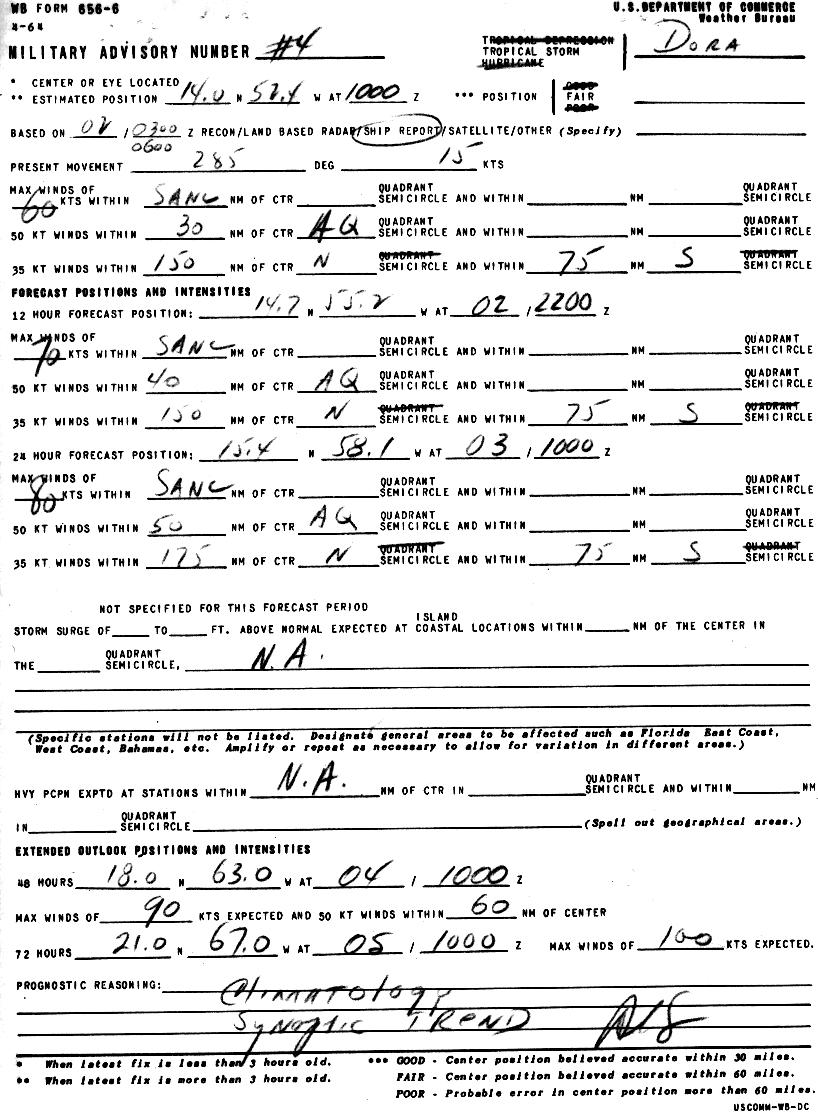 WB FORM 656-6
4-64
U.S. DEPARTMENT OF COMMERCE
Weather Bureau
MILITARY ADVISORY NUMBER #4
TROPICAL DEPRESSION
TROPICAL STORM
HURRICANE
DORA
* CENTER OR EYE LOCATED
** ESTIMATED POSITION 14.0 N 52.4 W AT 1000 Z *** POSITION GOOD FAIR POOR
BASED ON 02 / 0300 Z RECON/LAND BASED RADAR/SHIP REPORT/SATELLITE/OTHER (Specify)
0600
PRESENT MOVEMENT 285 DEG 15 KTS
MAX WINDS OF QUADRANT QUADRANT
60 KTS WITHIN SANC NM OF CTR SEMICIRCLE AND WITHIN NM SEMICIRCLE
QUADRANT QUADRANT
50 KT WINDS WITHIN 30 NM OF CTR AQ SEMICIRCLE AND WITHIN NM SEMICIRCLE
QUADRANT QUADRANT
35 KT WINDS WITHIN 150 NM OF CTR N SEMICIRCLE AND WITHIN 75 NM S SEMICIRCLE
FORECAST POSITIONS AND INTENSITIES
12 HOUR FORECAST POSITION: 14.7 N 55.2 W AT 02 / 2200 Z
MAX WINDS OF QUADRANT QUADRANT
70 KTS WITHIN SANC NM OF CTR SEMICIRCLE AND WITHIN NM SEMICIRCLE
QUADRANT QUADRANT
50 KT WINDS WITHIN 40 NM OF CTR AQ SEMICIRCLE AND WITHIN NM SEMICIRCLE
QUADRANT QUADRANT
35 KT WINDS WITHIN 150 NM OF CTR N SEMICIRCLE AND WITHIN 75 NM S SEMICIRCLE
24 HOUR FORECAST POSITION: 15.4 N 58.1 W AT 03 / 1000 Z
MAX WINDS OF QUADRANT QUADRANT
80 KTS WITHIN SANC NM OF CTR SEMICIRCLE AND WITHIN NM SEMICIRCLE
QUADRANT QUADRANT
50 KT WINDS WITHIN 50 NM OF CTR AQ SEMICIRCLE AND WITHIN NM SEMICIRCLE
QUADRANT QUADRANT
35 KT WINDS WITHIN 175 NM OF CTR N SEMICIRCLE AND WITHIN 75 NM S SEMICIRCLE
NOT SPECIFIED FOR THIS FORECAST PERIOD
ISLAND
STORM SURGE OF TO FT. ABOVE NORMAL EXPECTED AT COASTAL LOCATIONS WITHIN NM OF THE CENTER IN
QUADRANT
THE SEMICIRCLE, N.A.
(Specific stations will not be listed. Designate general areas to be affected such as Florida East Coast,
West Coast, Bahamas, etc. Amplify or repeat as necessary to allow for variation in different areas.)
QUADRANT
HVY PCPN EXPTD AT STATIONS WITHIN N.A. NM OF CTR IN SEMICIRCLE AND WITHIN NM
QUADRANT
IN SEMICIRCLE (Spell out geographical areas.)
EXTENDED OUTLOOK POSITIONS AND INTENSITIES
48 HOURS 18.0 N 63.0 W AT 04 / 1000 Z
MAX WINDS OF 90 KTS EXPECTED AND 50 KT WINDS WITHIN 60 NM OF CENTER
72 HOURS 21.0 N 67.0 W AT 05 / 1000 Z MAX WINDS OF 100 KTS EXPECTED.
PROGNOSTIC REASONING: Climatology
Synoptic TREND
* When latest fix is less than 3 hours old. *** GOOD - Center position believed accurate within 30 miles.
** When latest fix is more than 3 hours old. FAIR - Center position believed accurate within 60 miles.
POOR - Probable error in center position more than 60 miles.
USCOMM-WB-DC